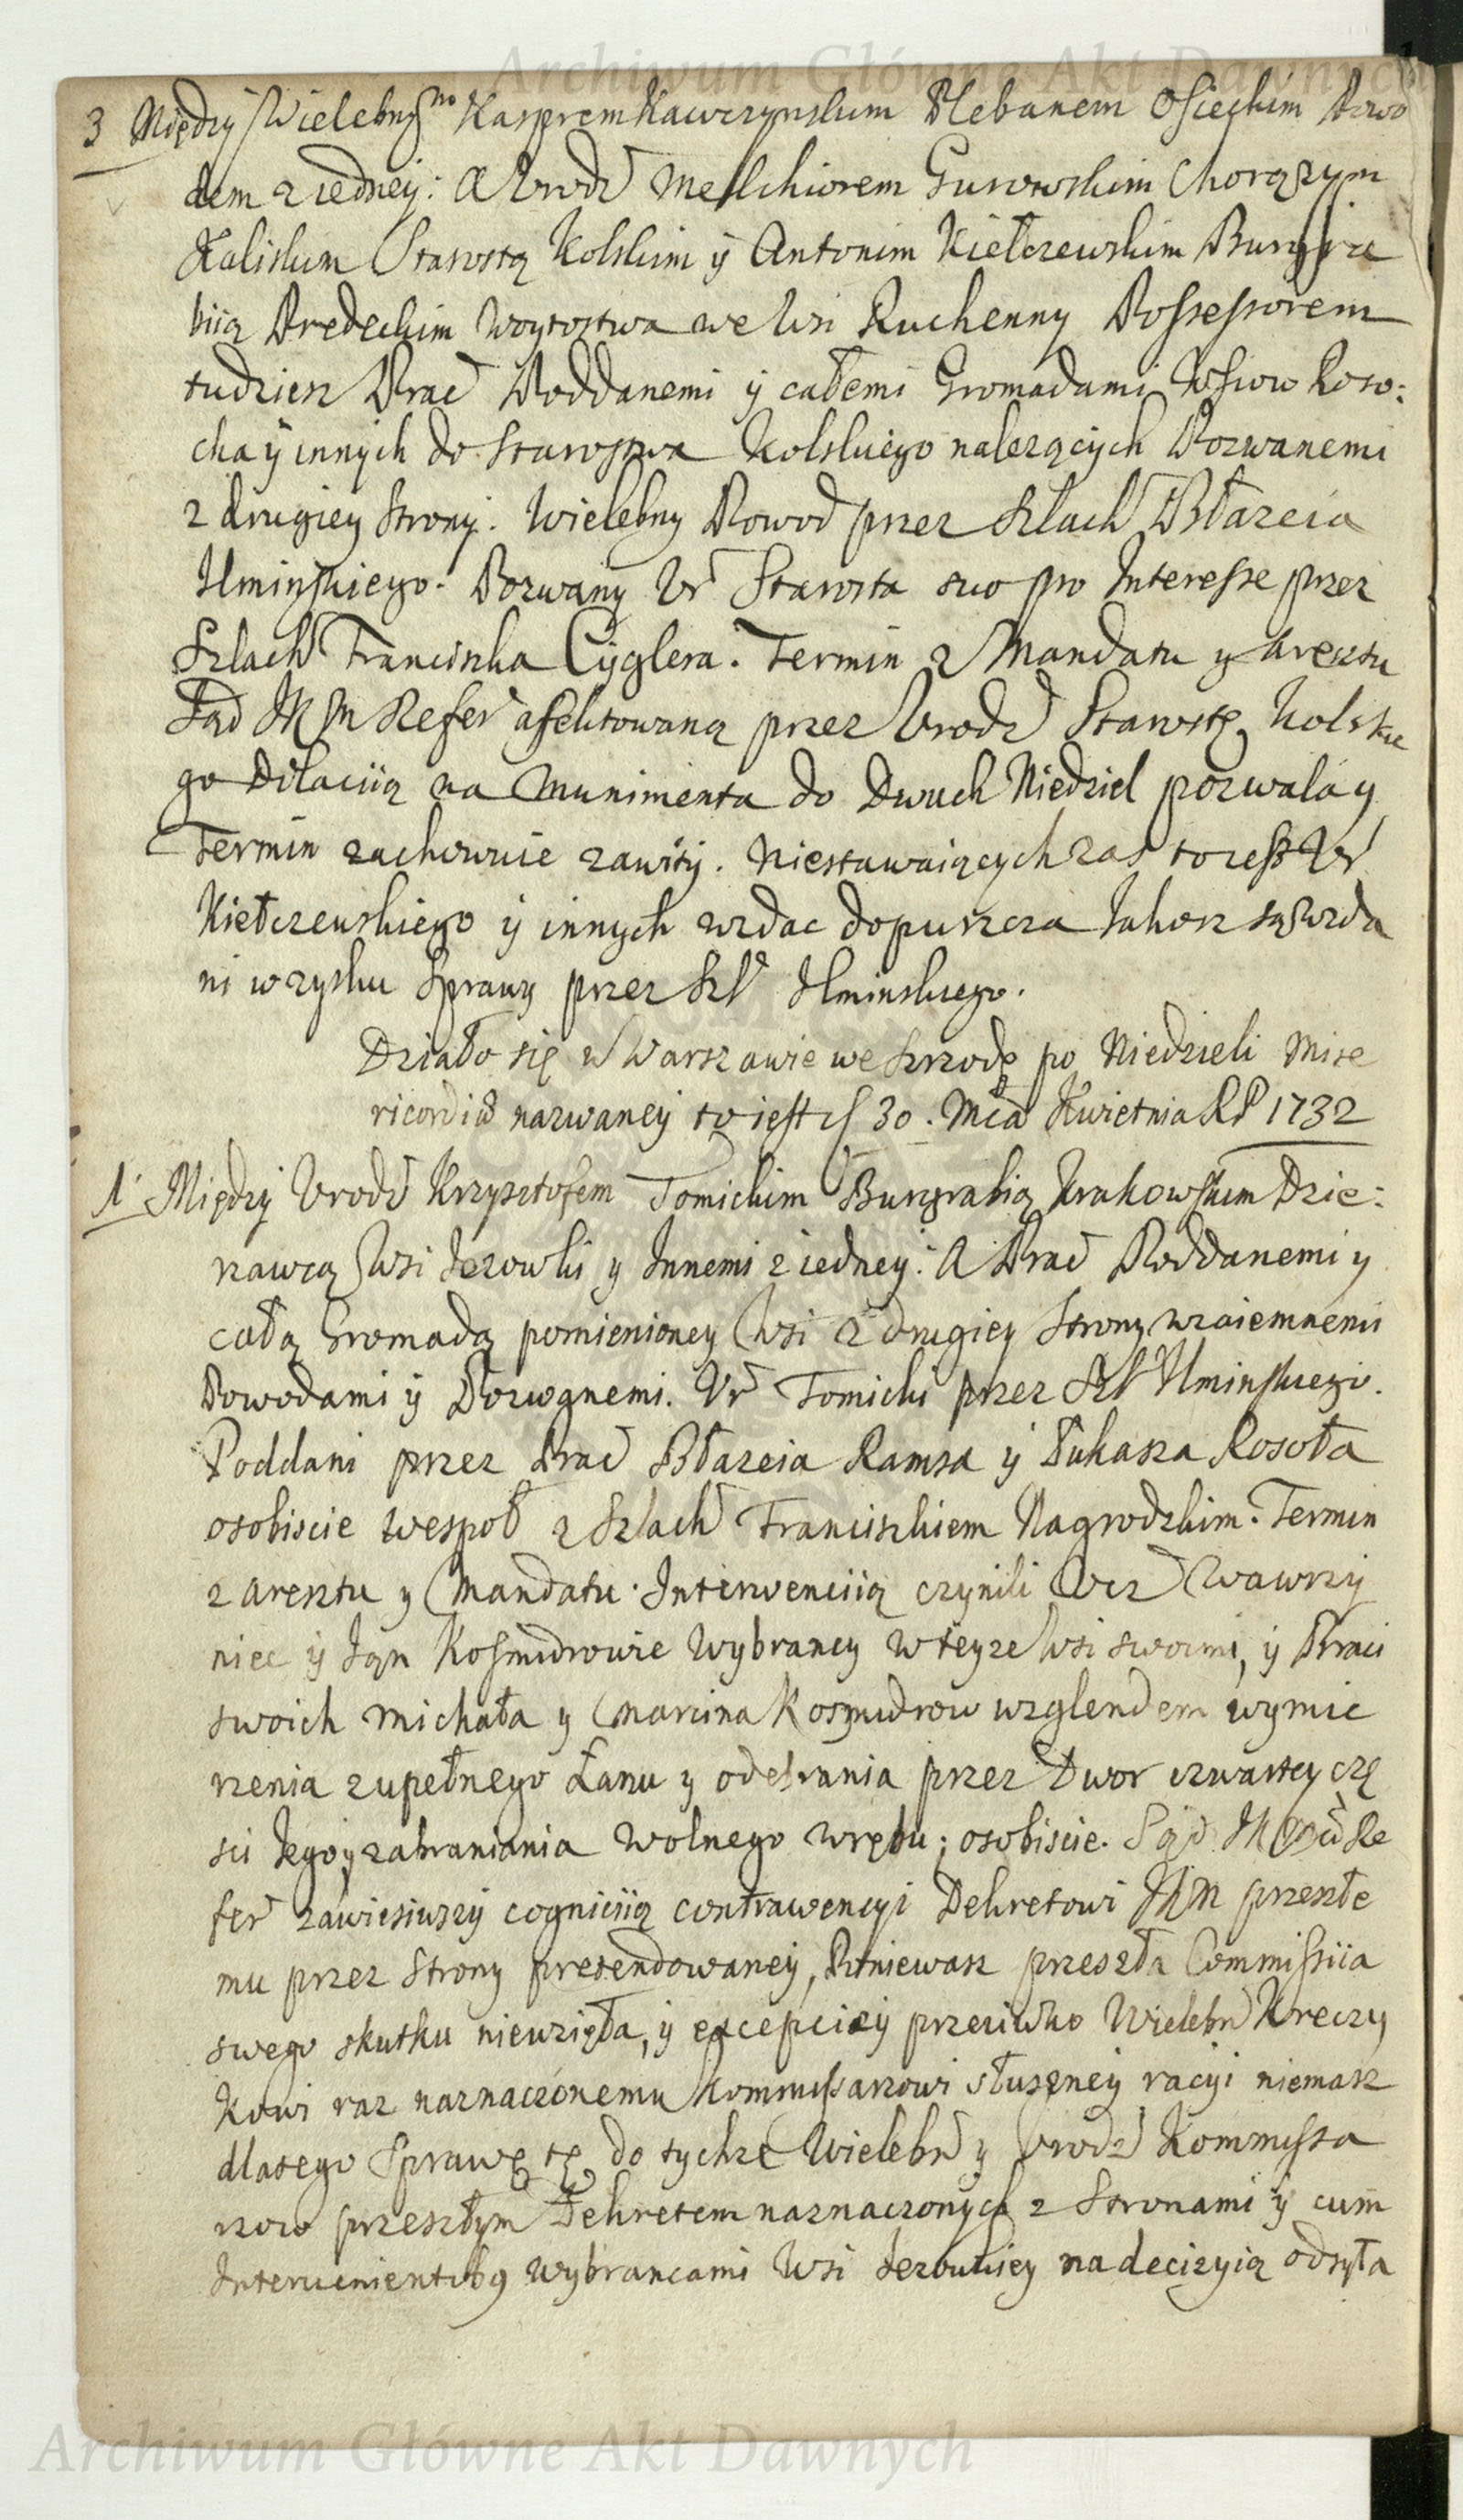 Archiwum Główne Akt Dawnych
3 Między Wielebnym Kasprem Kawczynskim Plebanem Osieckim Powo
dem z iedney: A Urodz Melchiorem Gurowskim Chorązym
Kaliskim Starostą Kolskim ÿ Antonim Kiełczewskim Burgra
bią Przedeckim Woytostwa we Wsi Ruchenny Possessorem
tudziesz Prac Poddanemi ÿ całemi Gromadami Wsiow Roso:
cha ÿ innych do Starostwa Kolskiego nalezących Pozwanemi
z drugiey Strony. Wielebny Powod przez Szlach Błazeia
Ilminskiego. Pozwany Ur Starosta suo pro Interesse przez
Szlach Franciszka Cyglera. Termin z Mandatu y aresztu
Sąd JKM Refer afektowaną przez Urodz Starostę Kolskie
go Dilaciią na Munimenta do Dwuch Niedziel pozwala y
Termin zachowuie zawity. Niestawaiących zas to iest Ur
Kiełczewskiego ÿ innych wzdac dopuszcza Jakosz są wzda
ni w zysku Sprawy przez Szl Ilminskiego.
Działo się w Warszawie we Srzodę po Niedzieli Mise
ricordia nazwaney to iest d 30. Mca Kwietnia RP 1732
1 Między Urodz Krzysztofem Tomickim Burgrabią Krakowskim Dzie:
rzawcą Wsi Jezowki y Innemi z iedney: A Prac Poddanemi y
całą Gromadą pomienioney Wsi z drugiey Strony wzaiemnemi
Powodami ÿ Pozwanemi. Ur Tomicki przez Szl Ilminskiego.
Poddani przez Prac Błazeia Ramsa ÿ Łukasza Rosoła
osobiscie wespoł z Szlach Franciszkiem Nagrodzkim. Termin
z aresztu y Mandatu. Interwenciią czynili Ucz Wawrzy
niec ÿ Jan Kosmidrowie Wybrancy w teyze Wsi swoim, ÿ Braci
swoich Michała y Marcina Kosmidrow wzglendem wymie
rzenia zupełnego Łanu y odebrania przez Dwor czwartey czę
sci Jego, y zabraniania wolnego wrębu; osobiscie. Sąd JKM Re
fer zawiesiwszy cogniciią contrawencyi Dekretowi JKM przeszłe
mu przez Strony pretendowaney, Poniewasz przeszła Commissiia
swego skutku niewzięła, ÿ excepciey przeciwko Wielebn Kreczy
kowi raz naznaczonemu Kommissarzowi słuszney racyi niemasz
dlatego Sprawę tę do tychze Wielebn y Urodz Kommissa
rzow przeszłym Dekretem naznaczonych z Stronami ÿ cum
Interuenientibus Wybrancami Wsi Jezowkiey na decizyią odsyła
Archiwum Główne Akt Dawnych